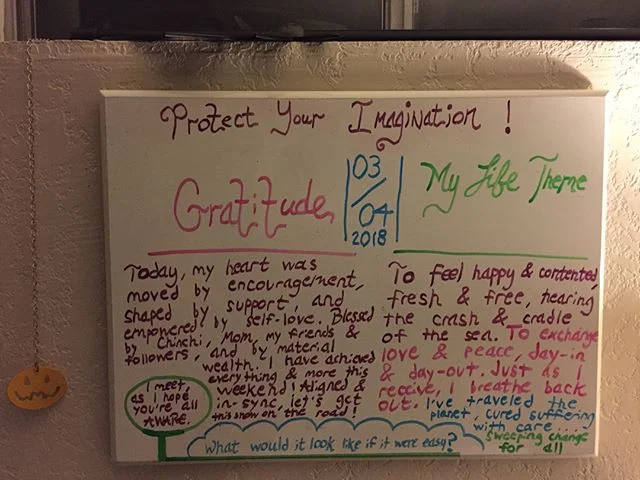 Protect Your Imagination!
Gratitude
03/04
2018
My Life Theme
Today, my heart was
moved by encouragement,
shaped by support, and
empowered by self-love. Blessed
by Chinchi, Mom, my friends &
followers, and by material
wealth. I have achieved
everything & more this
weekend! Aligned &
in-sync, let's get
this show on the road!
I meet,
as I hope
you're all
AWARE.
To feel happy & contented,
fresh & free, hearing
the crash & cradle
of the sea. To exchange
love & peace, day-in
& day-out. Just as I
receive, I breathe back
out. I've traveled the
planet, cured suffering
with care...
sweeping change
for all
What would it look like if it were easy?